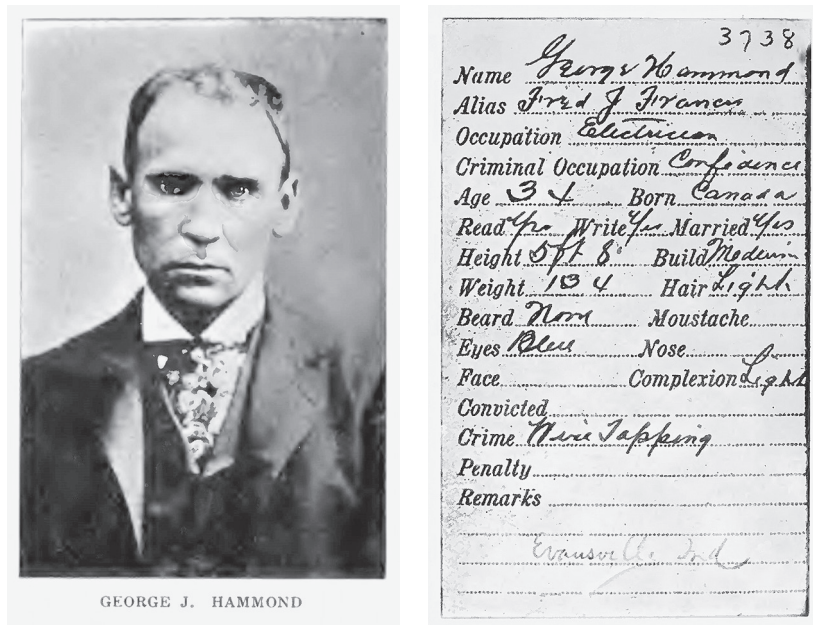 GEORGE J. HAMMOND
3738
Name George Hammond
Alias Fred J Francis
Occupation Electrician
Criminal Occupation Confidence
Age 34 Born Canada
Read Yes Write Yes Married Yes
Height 5ft 8" Build Medium
Weight 134 Hair Light
Beard None Moustache
Eyes Blue Nose
Face Complexion Light
Convicted
Crime Wire Tapping
Penalty
Remarks
Evansville Ind